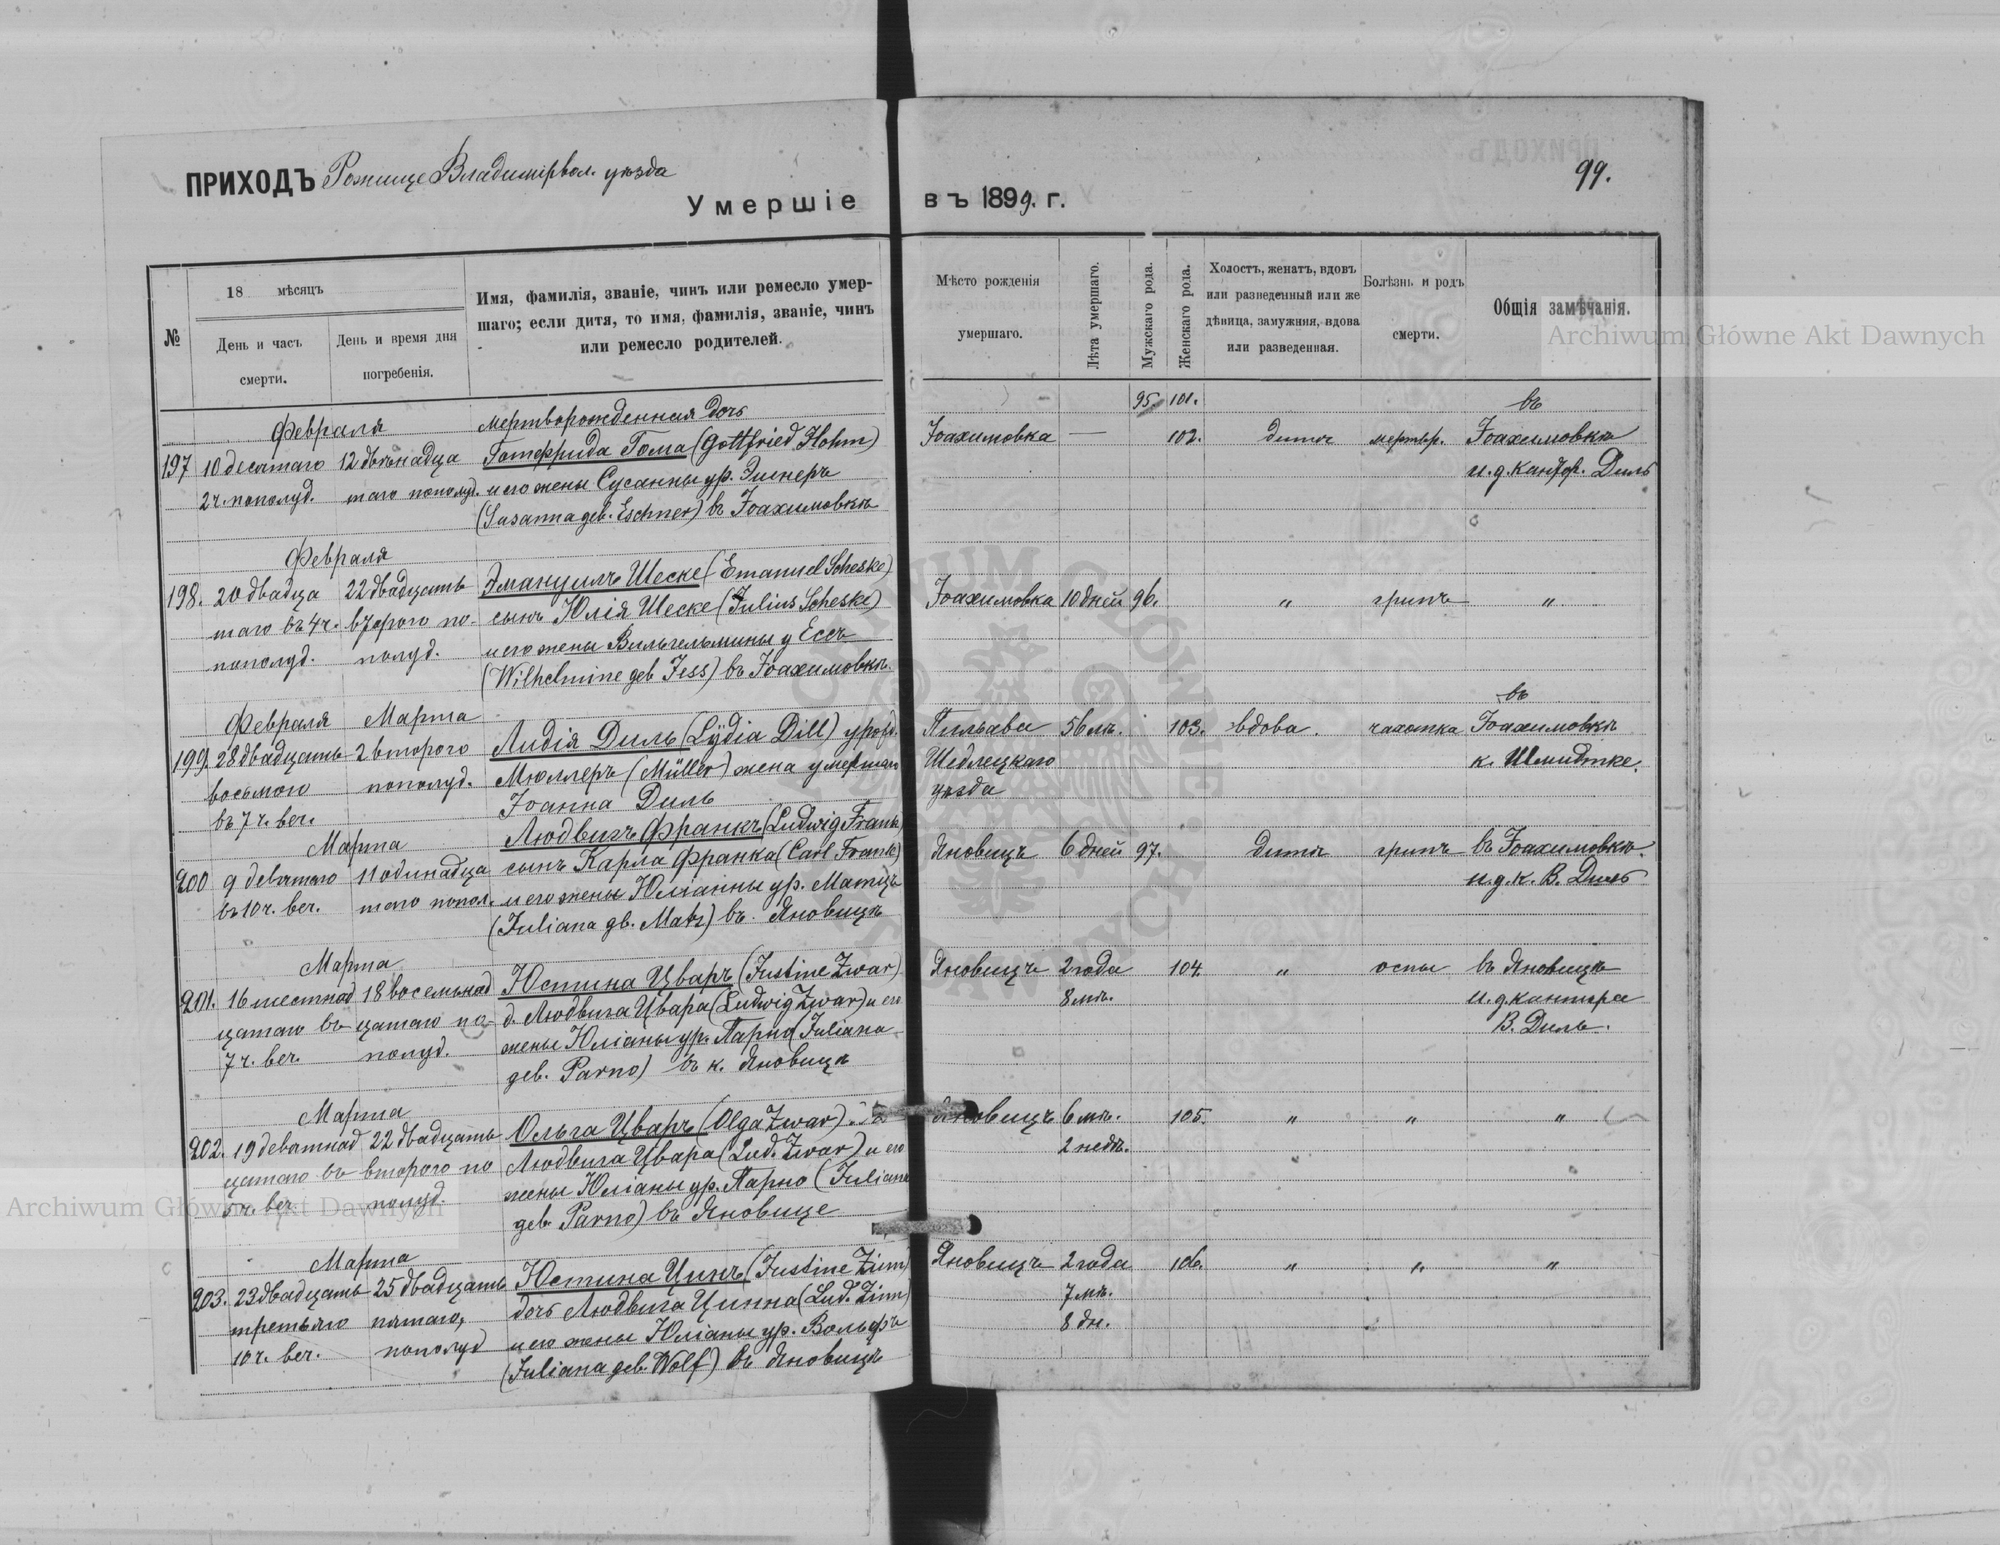 ПРИХОДЪ Рожище Владимірвол. уѣзда
99.
Умершіе въ 1899. г.
№
18 мѣсяцъ
День и часъ смерти.
День и время дня погребенія.
Имя, фамилія, званіе, чинъ или ремесло умер-
шаго; если дитя, то имя, фамилія, званіе, чинъ
или ремесло родителей.
Мѣсто рожденія
умершаго.
Лѣта умершаго.
Мужскаго рода.
Женскаго рода.
Холостъ, женатъ, вдовъ
или разведенный или же
дѣвица, замужняя, вдова
или разведенная.
Болѣзнь и родъ
смерти.
Общія замѣчанія.
Archiwum Główne Akt Dawnych
95 101.
Февраля
197 10 десятаго 12 двѣнадца
2 ч. пополуд. таго пополуд.
мертворожденная дочь
Готфрида Гома (Gottfried Hohm)
и его жены Сусанны ур. Эшнеръ
(Susanna geb. Eschner) въ Іоахимовкѣ
Іоахимовка — 102. дитя мертвр.
въ
Іоахимовкѣ
и. д. кантор. Диль
Февраля
198. 20 двадца 22 двадцать
таго въ 4 ч. второго по-
пополуд. полуд.
Эмануилъ Шеске (Emanuel Scheske)
сынъ Юлія Шеске (Julius Scheske)
и его жены Вильгельмины у Ессъ
(Wilhelmine geb Jess) въ Іоахимовкѣ.
Іоахимовка 10 дней 96. " грипъ "
Февраля Марта
199. 28 двадцать 2 второго
восьмого пополуд.
въ 7 ч. веч.
Лидія Диль (Lydia Dill) урожд.
Мюллеръ (Müller) жена умершаго
Іоанна Диль
Пильава 56 лѣ. 103. вдова. чахотка
Шедлецкаго
уѣзда
въ
Іоахимовкѣ
к. Шмидтке.
Марта
200 9 девятаго 11 одинадца
въ 10 ч. веч. таго попол.
Людвигъ Франкъ (Ludwig Frank)
сынъ Карла Франка (Carl Frank)
и его жены Юліанны ур. Матцъ
(Juliana gb. Matz) въ Яновицѣ
Яновицъ 6 дней 97. дитя грипъ въ Іоахимовкѣ.
и. д. к. В. Диль
Марта
201. 16 шестнад 18 восемьнад
цатаго въ цатаго по-
7 ч. веч. полуд.
Юстина Цваръ (Justine Zwar)
д. Людвига Цвара (Ludwig Zwar) и его
жены Юліаны ур. Парно (Juliana
geb. Parno) въ к. Яновицѣ
Яновицъ 2 года 104. " оспы въ Яновицѣ
8 мѣ. и. д. кантора
В. Диль.
Марта
202. 19 девятнад 22 двадцать
цатаго въ второго по
5 ч. веч. полуд.
Ольга Цваръ (Olga Zwar)
Людвига Цвара (Lud. Zwar) и его
жены Юліаны ур. Парно (Juliana
geb. Parno) въ Яновице
Яновицъ 6 мѣ. 105. " " "
2 недѣ.
Archiwum Główne Akt Dawnych
Марта
203. 23 двадцать 25 двадцать
третьяго пятаго,
10 ч. веч. пополуд
Юстина Цинъ (Justine Zinn)
дочь Людвига Цинна (Lud. Zinn)
и его жены Юліаны ур. Вольфъ
(Juliana geb. Wolf) въ Яновицѣ
Яновицъ 2 года 106. " " "
7 мѣ.
8 дн.